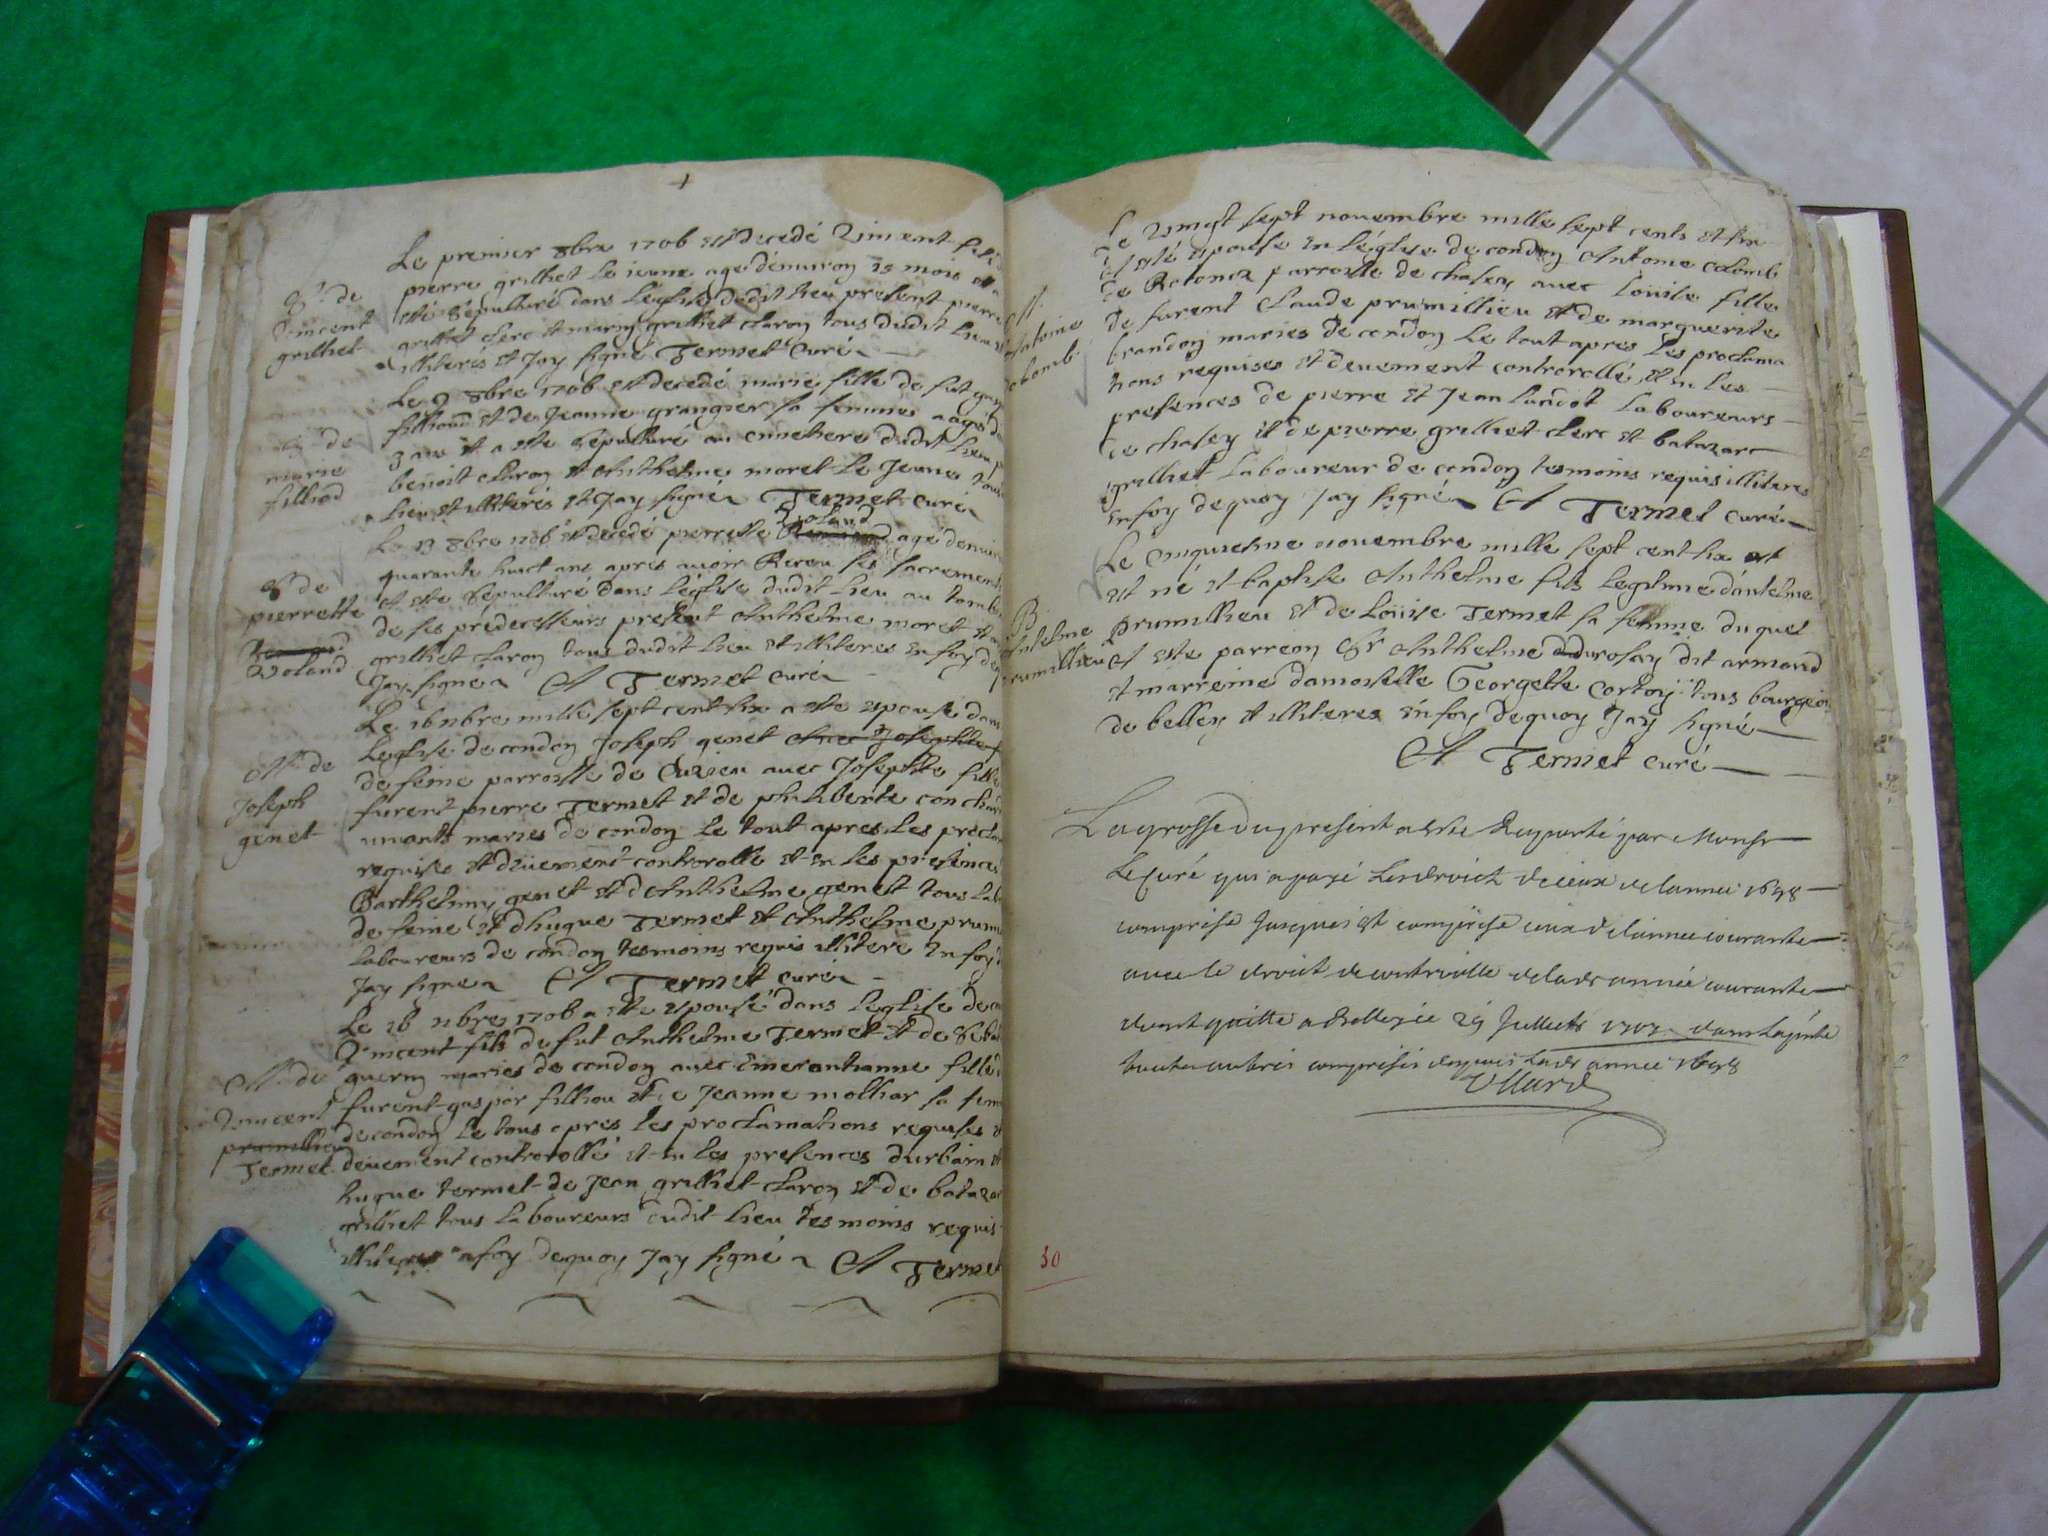 Le premier 8bre 1706 est decedé Vincent fils
pierre grilliet le ieune agé denviron 15 mois
esté sépulturé dans léglise dudit lieu present pierre
grilliet clerc et marin grilliet claron tous dudit lieu
illiterés et Jay signé Termet curé
S. de
Vincent
grilliet
Le 9 8bre 1706 est decedé marie fille de fut
filliod et de Jeanne grangier sa femme agé
3 ans et a esté sépulturé au cimetiere dudit lieu
benoit claron et Anthelme moret le Jeune tous
lieu et illiterés et Jay signé Termet curé
de
marie
filliod
Voland
Le 13 8bre 1706 est decedé pierrette agé
quarante huict ans apres avoir Receu ses sacremens
et esté sépulturé dans léglise dudit lieu au tombe
de ses predecesseurs present Anthelme moret et
grilliet claron tous dudit lieu et illiteres en foy de
Jay signé A Termet curé
S. de
pierrette
Voland
Le 16 nbre mille sept cent six a esté epousé dans
leglise de condon Joseph genet avec Josephte
de seme parroisse de Cuzieu avec Josephte fille
furent pierre Termet et de philiberte
vivants mariés de condon le tout apres les procla
requises et düement controrollé et en les presences
Barthelmy genet et dAnthelme genet tous lab
de seme et dhugue Termet et Anthelme prumi
laboureurs de condon tesmoins requis illitere En foy
Jay signé A Termet curé
M. de
Joseph
genet
Le 16 nbre 1706 a esté epousé dans leglise de
Vincent fils de fut Anthelme Termet et de
guerin mariés de condon avec Emerantianne fille
furent gaspar filliou et de Jeanne molliar sa fem
de condon le tous apres les proclamations requises
deüement controrollé et en les presences durbain et
hugue termet de Jean grilliet claron et de batazar
grilliet tous laboureurs dudit lieu tesmoins requis
illiteres foy dequoy Jay signé A Termet
M. de
Vincent
prumillieu
Termet
Le vingt sept novembre mille sept cents et six
a esté epousé en léglise de condon Antoine colomb
de Rotonoz parroisse de chasey avec Loüise fille
de furent claude prumillieu et de marguerite
brandon mariés de condon Le tout apres les proclama
tions requises et deuement controrollé et en les
presences de pierre et Jean Laboureurs
de chasey et de pierre grilliet clerc et batazar
grilliet laboureur de condon tesmoins requis illiteres
en foy dequoy Jay signé A Termet curé
M.
Antoine
colomb
Le cinquiesme novembre mille sept cent six
est né et baptisé Anthelme fils legitime dantelme
Prumillieu et de Loüise Termet sa femme duquel
A esté parreon Sr Anthelme dudurosay dit armand
et marreine damoiselle Georgette Cortoy tous bourgeois
de belley et illiteres en foy dequoy Jay signé
A Termet curé
B
Antelme
prumillieu
La grosse du present a esté Raporté par Monsr
Le curé qui a payé Les droictz diceux de lannee 1698
comprise Jusques et comprise ceux de lannee courante
avec le droict de controlle de lade année courante
dont quitte a Belley ce 29 Juillet 1707
toutes autres comprises depuis lade annee 1698
Ullard
50